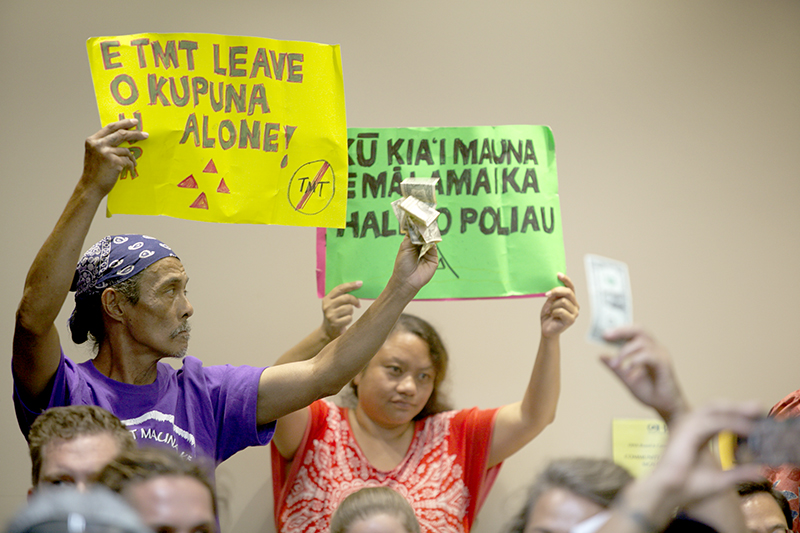 E TMT LEAVE
O KUPUNA
ALONE!
TMT
KŪ KIA'I MAUNA
E MĀLAMA I KA
O POLIAU
MAUNA